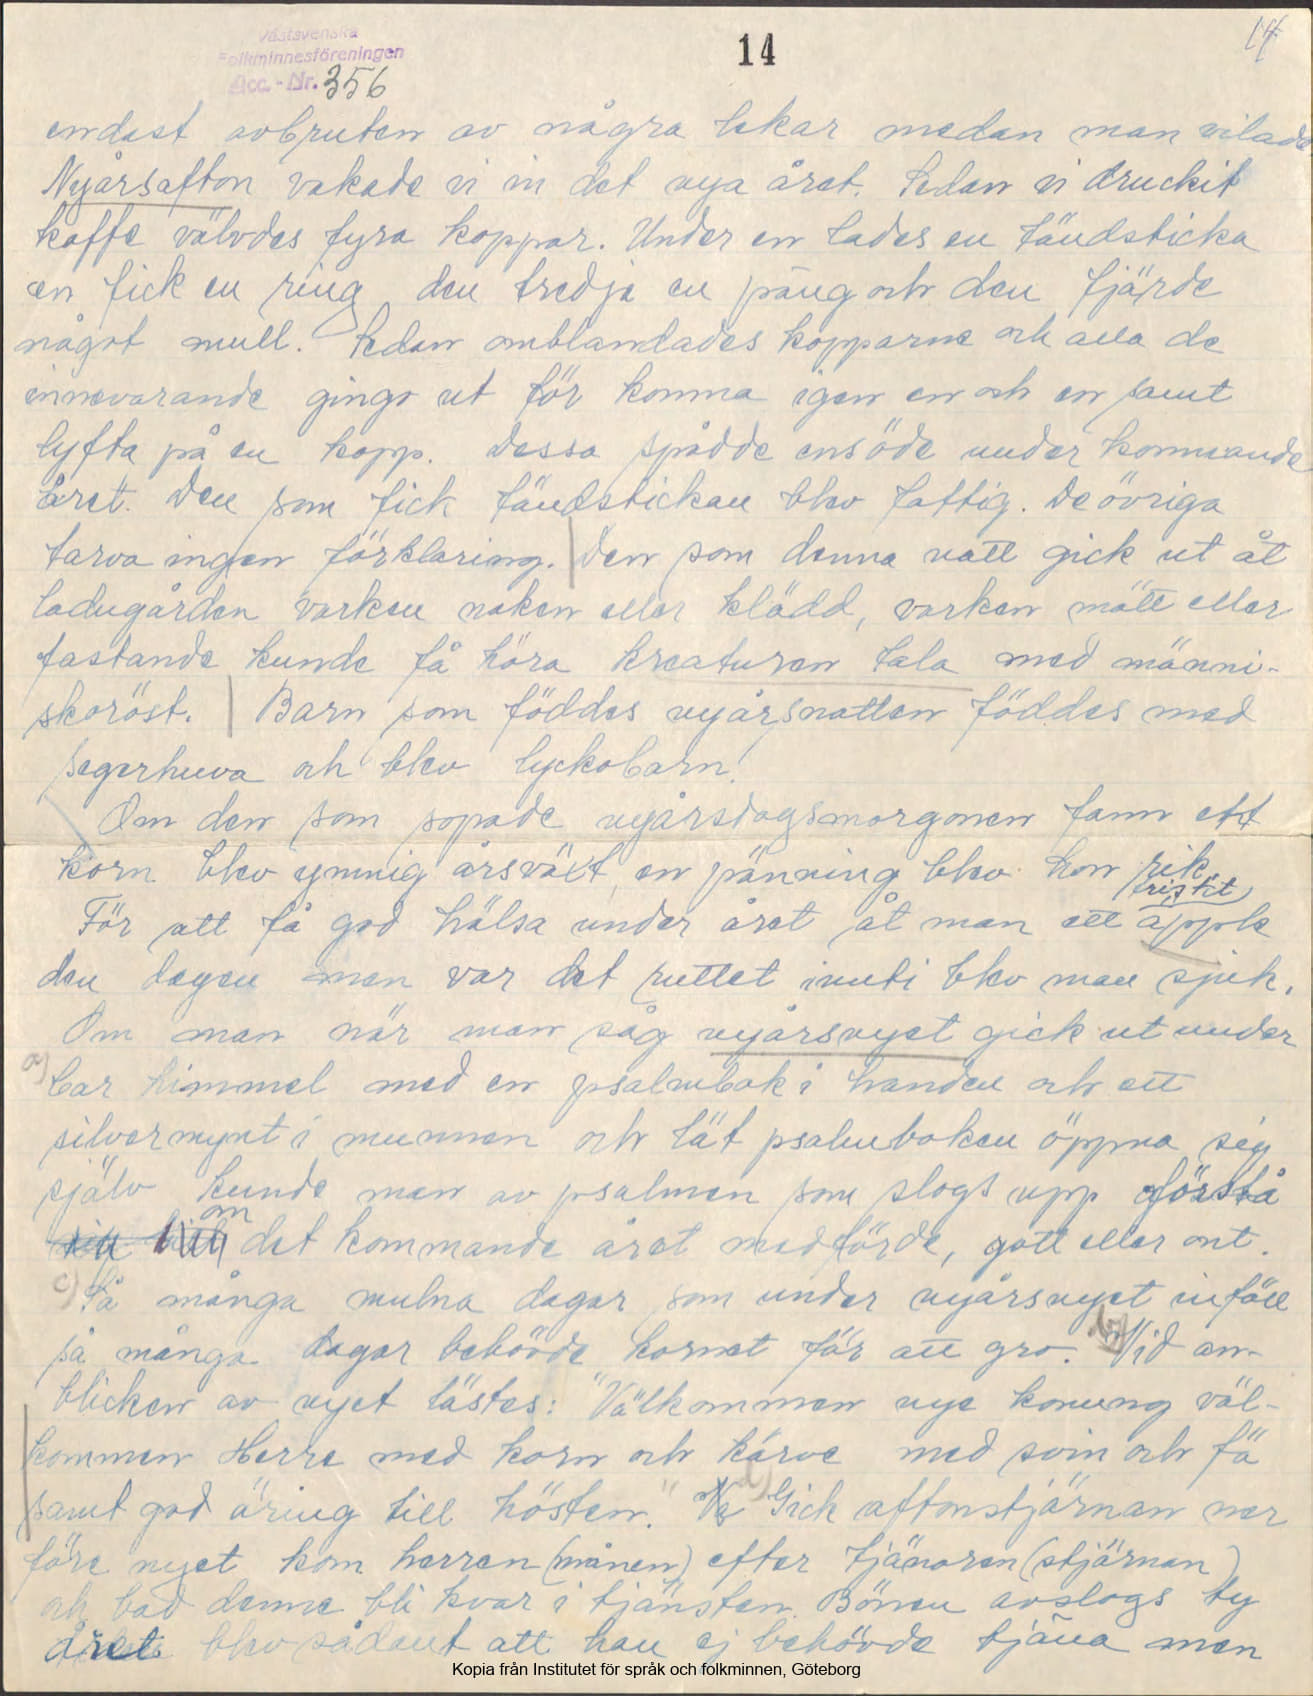 Västsvenska
Folkminnesföreningen
Acc.-Nr. 356
14
14
endast avbruten av några lekar medan man vilade
Nyårsafton vakade vi in det nya året. Sedan vi druckit
kaffe välvdes fyra koppar. Under en lades en tändsticka
en fick en ring den tredje en päng och den fjärde
något mull. Sedan omblandades kopparne och alla de
innevarande gingo ut för komma igen en och en samt
lyfta på en kopp. Dessa spådde ens öde under kommande
året. Den som fick tändstickan blev fattig. De övriga
tarva ingen förklaring. Den som denna natt gick ut åt
ladugården varken naken eller klädd, varken mätt eller
fastande kunde få höra kreaturen tala med männi-
skoröst. Barn som föddes nyårsnatten föddes med
segerhuva och blev lyckobarn.
Om den som sopade nyårsdagsmorgonen fann ett
korn blev ymnig årsväxt, en pänning blev hon rik
För att få god hälsa under året åt man ett äpple
den dagen men var det ruttet inuti blev man sjuk.
Om man när man såg nyårsnyet gick ut under
a)
bar himmel med en psalmbok i handen och ett
silvermynt i munnen och lät psalmboken öppna sig
själv kunde man av psalmen som slogs upp förstå
om det kommande året medförde, gott eller ont.
c) Så många mulna dagar som under nyårsnyet inföll
så många dagar behövde kornet för att gro. b) Vid an-
blicken av nyet lästes: "Välkommen nye konung väl-
kommen Herre med korn och kärve med svin och fä
samt god äring till hösten." d) Gick aftonstjärnan ner
före nyet kom herren (månen) efter tjänaren (stjärnan)
och bad denne bli kvar i tjänsten. Bönen avslogs ty
året blev sådant att han ej behövde tjäna men
Kopia från Institutet för språk och folkminnen, Göteborg